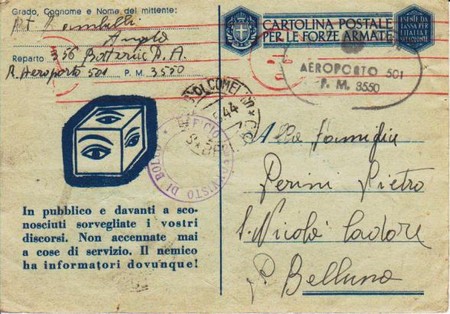 Grado, Cognome e Nome del mittente:
Angelo
Reparto 356 Batteria D. A.
R. Aeroporto 501 P. M. 3550
CARTOLINA POSTALE
PER LE FORZE ARMATE
ESENTE DA
TASSA PER
L'ITALIA E
AEROPORTO 501
P. M. 3550
44
In pubblico e davanti a sco-
nosciuti sorvegliate i vostri
discorsi. Non accennate mai
a cose di servizio. Il nemico
ha informatori dovunque!
Alla famiglia
Perini Pietro
S. Nicolò Cadore
Belluno